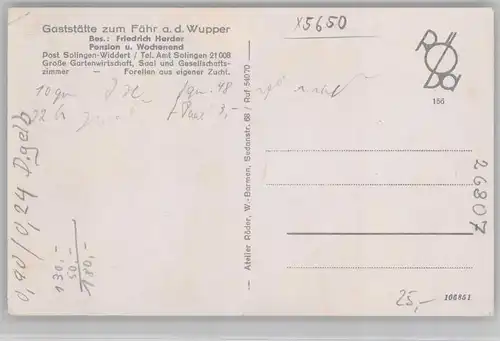 Gaststätte zum Fähr a. d. Wupper
Bes.: Friedrich Herder
Pension u. Wochenend
Post Solingen-Widdert / Tel. Amt Solingen 21008
Große Gartenwirtschaft, Saal und Gesellschafts-
zimmer — Forellen aus eigener Zucht.
x5650
RÖBa
156
10 qm
qm. 48
22 h
Paar 3,-
0,90/0,24 D.gelb
130,-
50,-
180,-
— Atelier Röder, W.-Barmen, Sedanstr. 68 / Ruf 54070 —
26807
25,-
106851